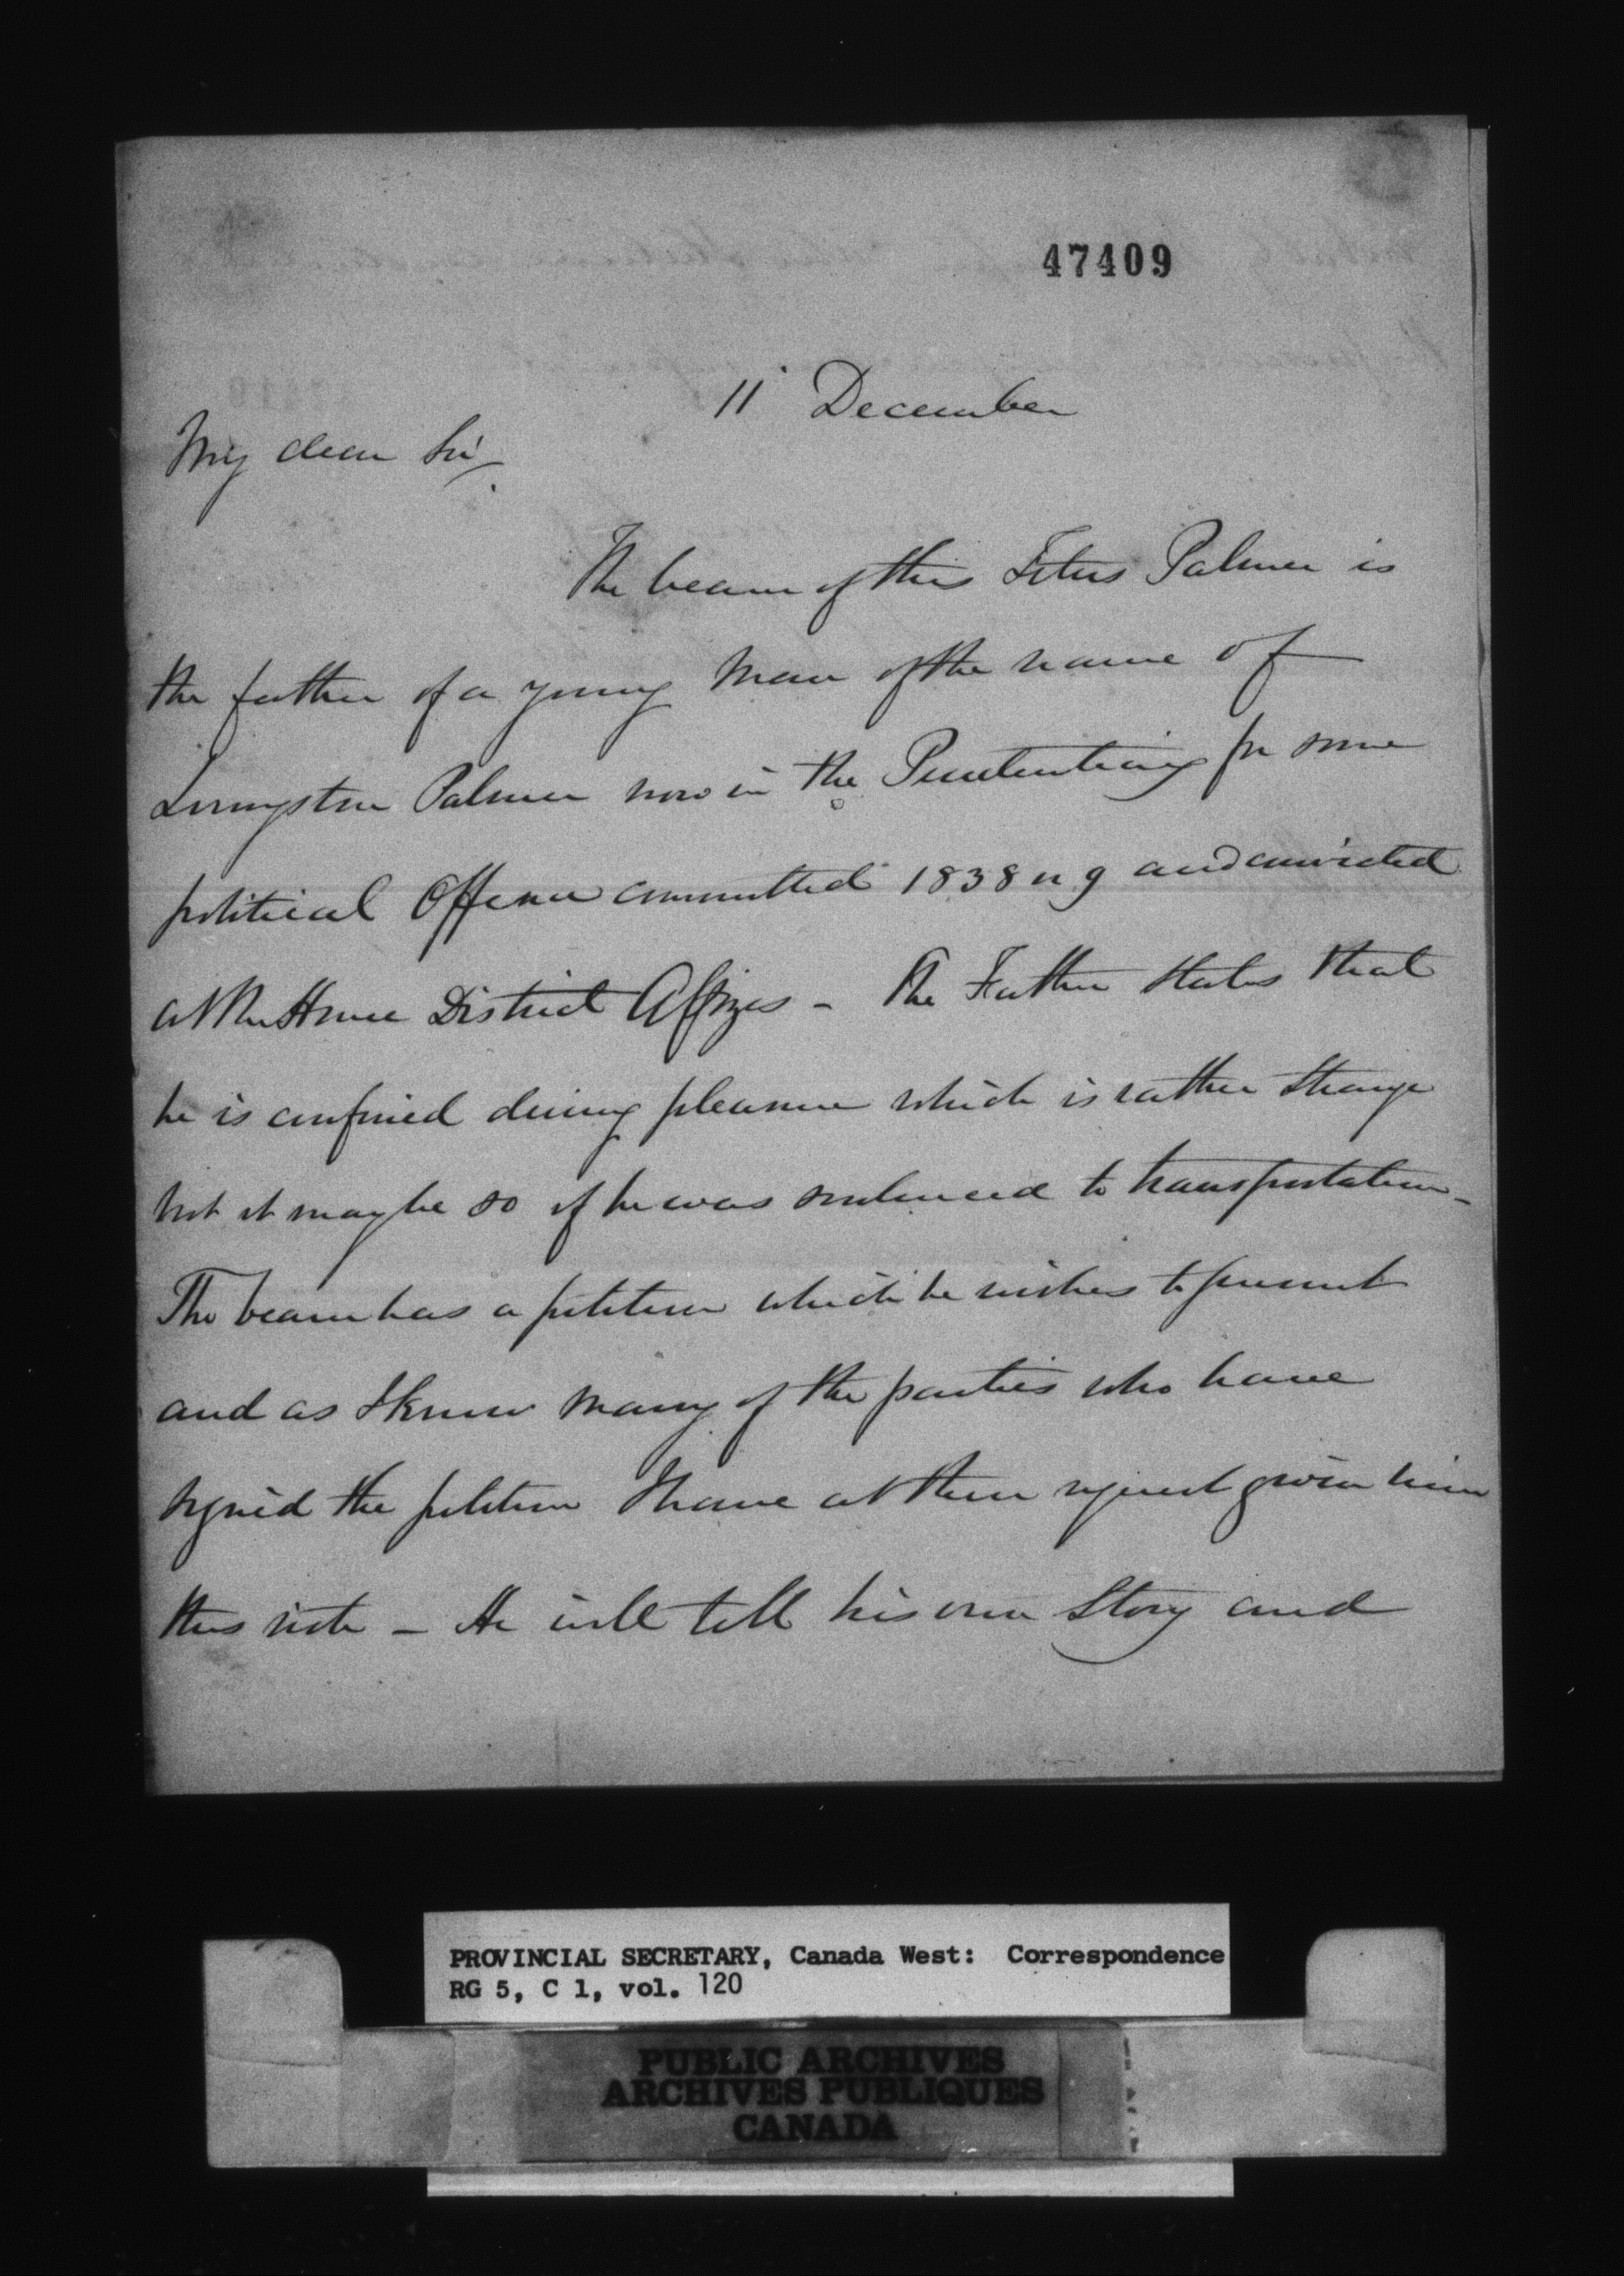 47409
11 December
My dear Sir,
The bearer of this Titus Palmer is
the father of a young Man of the name of
Livingston Palmer now in the Penitentiary for some
political Offence committed 1838 or 9 and convicted
at the Home District Assizes - The Father States that
he is confined during pleasure which is rather Strange
but it may be so if he was sentenced to transportation -
The bearer has a petition which he wishes to present
and as I know Many of the parties who have
signed the petition I have at their request given him
this note - He will tell his own Story and
PROVINCIAL SECRETARY, Canada West: Correspondence
RG 5, C 1, vol. 120
PUBLIC ARCHIVES
ARCHIVES PUBLIQUES
CANADA